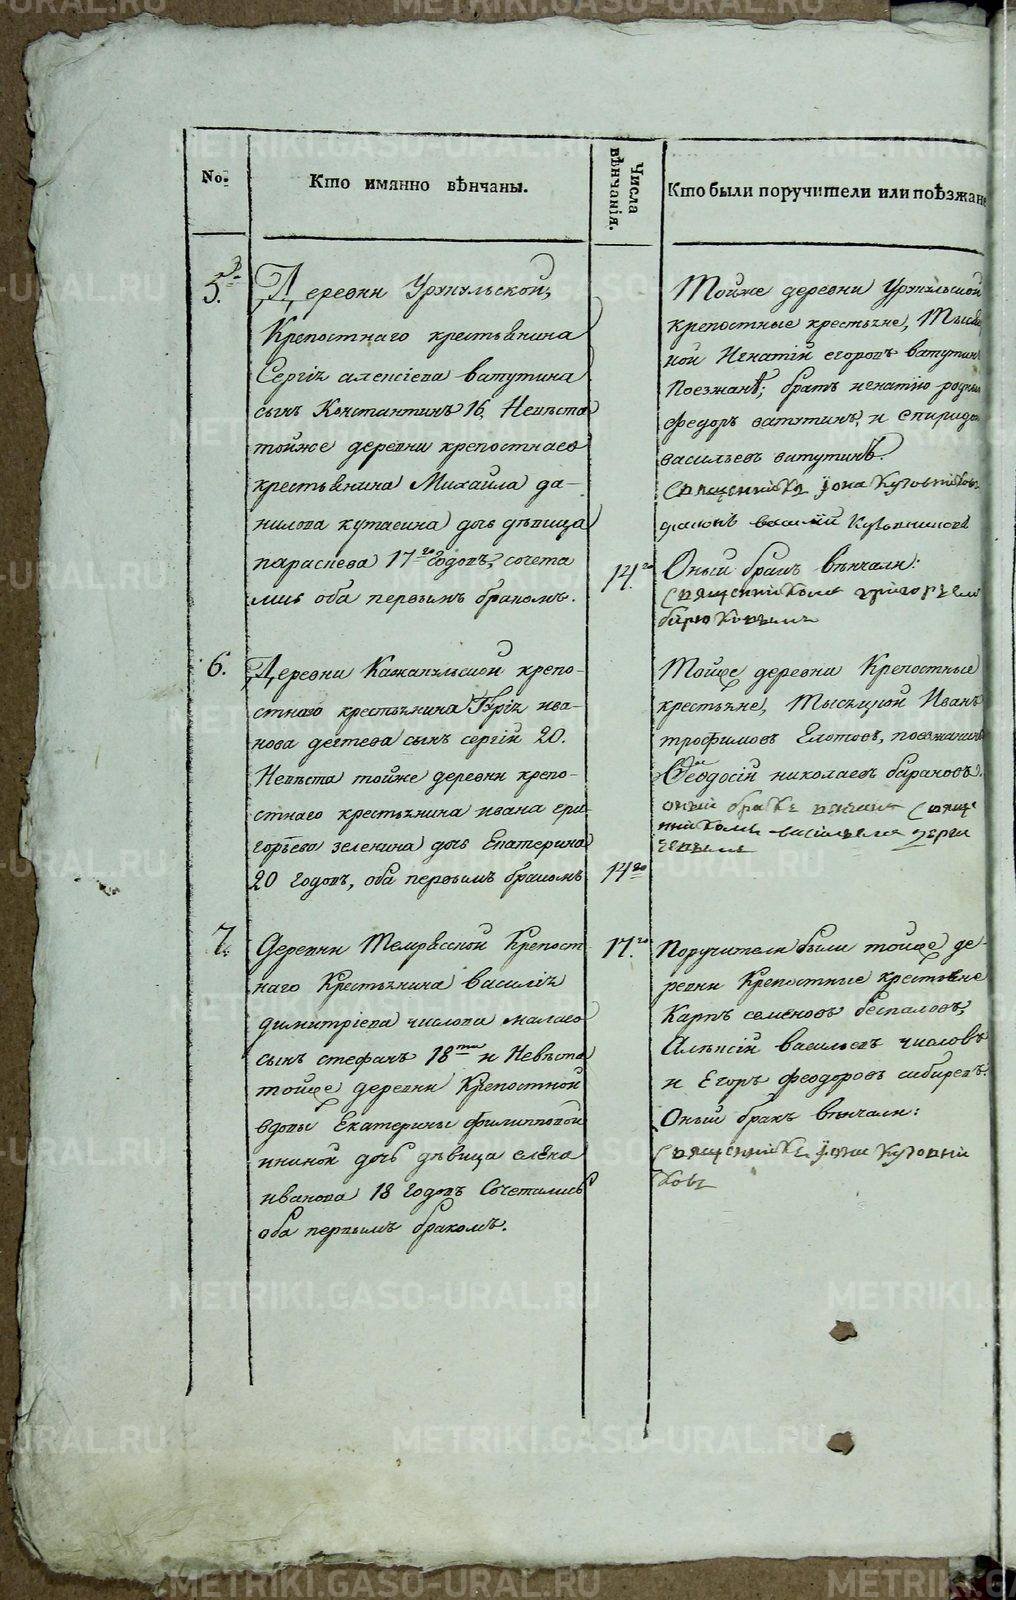 No.
Кто имянно вѣнчаны.
Числа вѣнчанія.
Кто были поручители или поѣзжане
5.
Деревни
Крепостнаго крестьянина
Сергія алексіева ватутина
сынъ Константинъ 16, Невѣста
тойже деревни крепостнаго
крестьянина Михаила да-
нилова кутасина дочь дѣвица
параскева 17 годовъ, сочета
лись оба первымъ бракомъ.
14.
Тойже деревни
крепостные крестьяне,
Игнатій егоровъ ватутинъ
Поезжанѣ; братъ игнатію
федоръ ватутинъ, и
васильевъ ватутинѣ.
Священникъ Іона
діаконъ василій
Оный бракъ вѣнчали:
священникомъ григорьемъ
бирюковымъ
6.
Деревни крепо-
стнаго крестьянина ива-
нова дегтева сынъ сергій 20.
Невѣста тойже деревни крепо-
стнаго крестьянина ивана гри-
горьева зеленина дочь Екатерина
20 годовъ, оба первымъ бракомъ
14
Тойже деревни Крепостные
крестьяне, Тысяцкой Иванъ
трофимовъ поезжанинъ
Феодосій николаевъ барановъ.
оный бракъ священ
никомъ васильемъ
7.
Деревни Крепост-
наго Крестьянина василія
димитріева числова малаго
сынъ стефанъ 18 и Невѣста
тойже деревни Крепостной
вдовы Екатерины филипповой
дочь дѣвица елена
иванова 18 годовъ Сочетались
оба первымъ бракомъ.
17.
Поручители были тойже де-
ревни Крепостные крестьяне
Карпъ семеновъ беспаловъ,
Алексій васильевъ числовъ
и Егоръ феодоровъ сибиревъ.
Оный бракъ вѣнчали:
священникъ Іона
METRIKI.GASO-URAL.RU